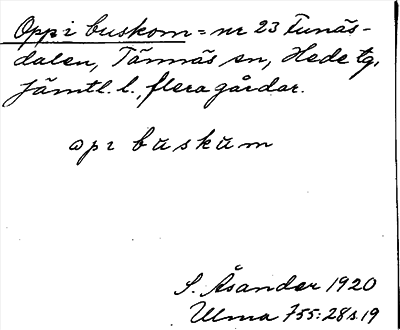 Opp i buskom = nr 23 Funäs-
dalen, Tännäs sn, Hede tg,
Jämtl. l., flera gårdar.
op i buskum
S. Åsander 1920
Ulma 755:28 s. 19